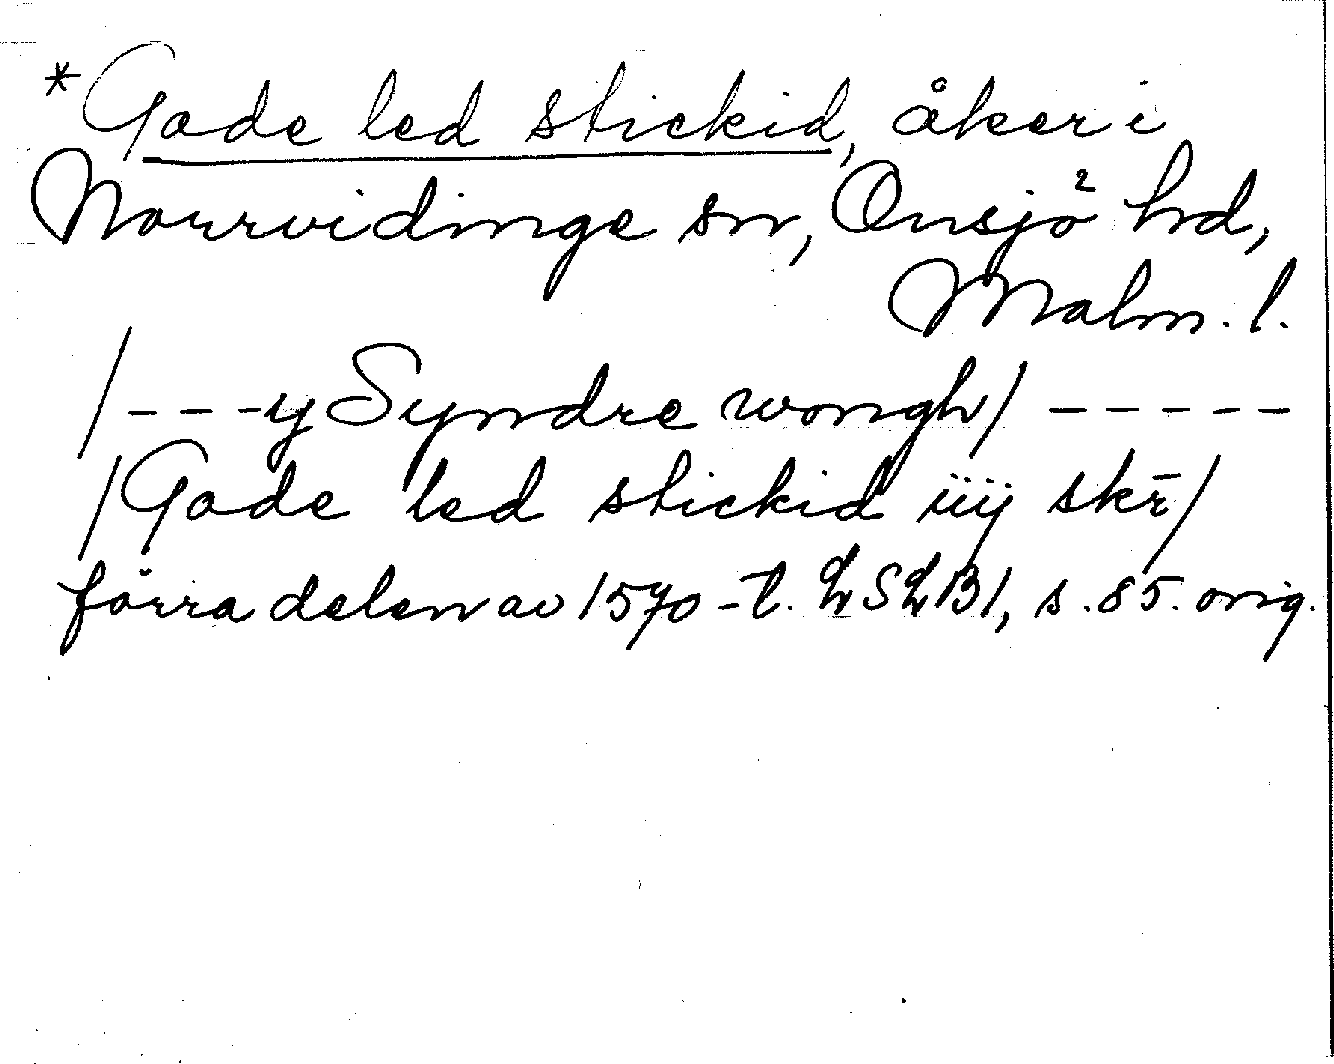 *Gade led stickid, åker i
Norrvidinge sn, Onsjö hd,
Malm. l.
/---y Syndre wongh/ -----
/Gade led stickid iiij skr̄/
förra delen av 1570-t. LSLB1, s. 85. orig.